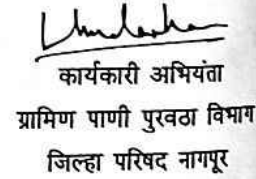 कार्यकारी अभियंता
ग्रामिण पाणी पुरवठा विभाग
जिल्हा परिषद नागपूर